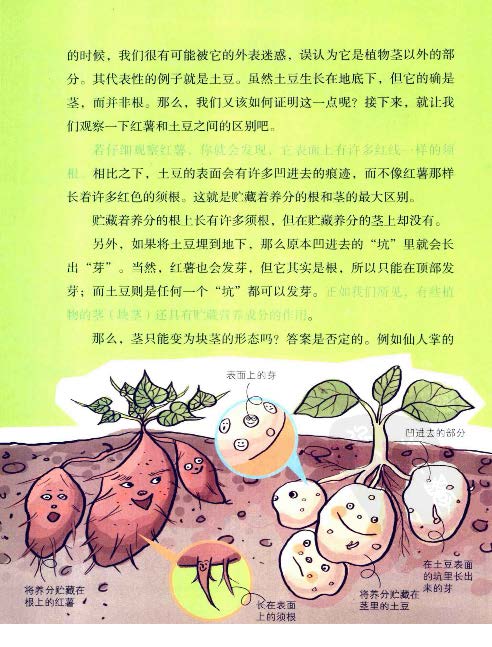 的时候，我们很有可能被它的外表迷惑，误认为它是植物茎以外的部
分。其代表性的例子就是土豆。虽然土豆生长在地底下，但它的确是
茎，而并非根。那么，我们又该如何证明这一点呢？接下来，就让我
们观察一下红薯和土豆之间的区别吧。
若仔细观察红薯，你就会发现，它表面上有许多红线一样的须
根。相比之下，土豆的表面会有许多凹进去的痕迹，而不像红薯那样
长着许多红色的须根。这就是贮藏着养分的根和茎的最大区别。
贮藏着养分的根上长有许多须根，但在贮藏养分的茎上却没有。
另外，如果将土豆埋到地下，那么原本凹进去的“坑”里就会长
出“芽”。当然，红薯也会发芽，但它其实是根，所以只能在顶部发
芽；而土豆则是任何一个“坑”都可以发芽。正如我们所见，有些植
物的茎（块茎）还具有贮藏营养成分的作用。
那么，茎只能变为块茎的形态吗？答案是否定的。例如仙人掌的
表面上的芽
凹进去的部分
将养分贮藏在
根上的红薯
长在表面
上的须根
将养分贮藏在
茎里的土豆
在土豆表面
的坑里长出
来的芽